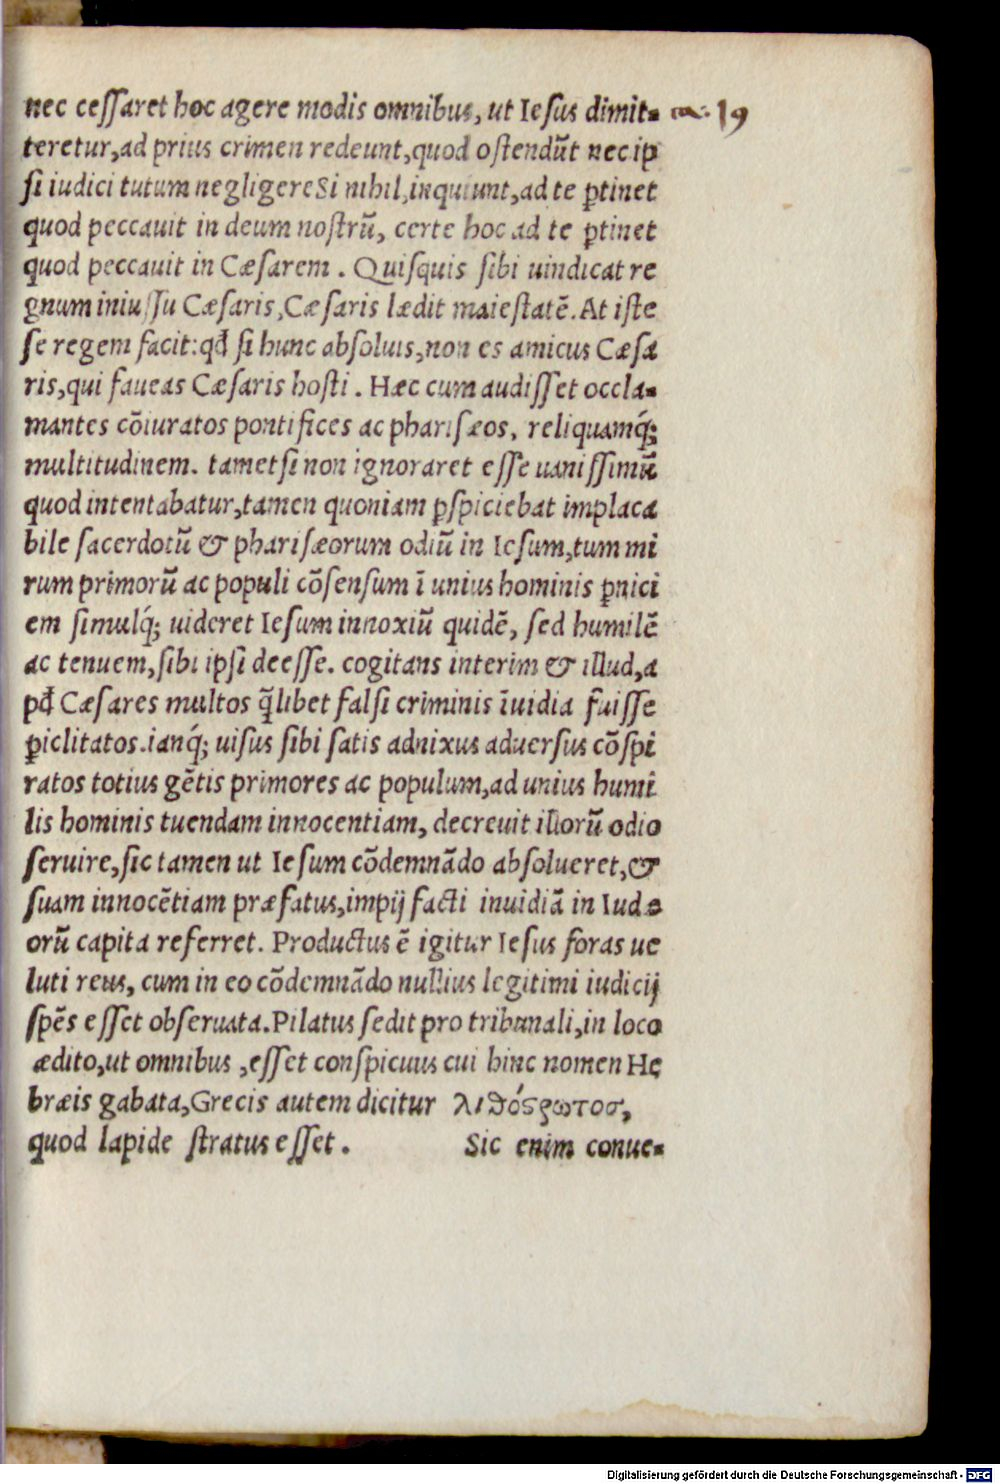 nec cessaret hoc agere modis omnibus, ut Iesus dimit-
teretur, ad prius crimen redeunt, quod ostendūt nec ip
si iudici tutum negligere Si nihil, inquiunt, ad te ꝑtinet
quod peccauit in deum nostrū, certe hoc ad te ꝑtinet
quod peccauit in Cæsarem . Quisquis sibi uindicat re
gnum iniussu Cæsaris, Cæsaris lædit maiestatē. At iste
se regem facit: qđ si hunc absoluis, non es amicus Cæsa
ris, qui faueas Cæsaris hosti . Hæc cum audisset occla-
mantes cōiuratos pontifices ac pharisæos, reliquamq́;
multitudinem. tametsi non ignoraret esse uanissimū
quod intentabatur, tamen quoniam ꝑspiciebat implaca
bile sacerdotū & pharisæorum odiū in Iesum, tum mi
rum primorū ac populi cōsensum ī unius hominis ꝑnici
em simulq́; uideret Iesum innoxiū quidē, sed humilē
ac tenuem, sibi ipsi deesse. cogitans interim & illud, a
pđ Cæsares multos q̄libet falsi criminis īuidia fuisse
ꝑiclitatos. ianq́; uisus sibi satis adnixus aduersus cōspi
ratos totius gētis primores ac populum, ad unius humi
lis hominis tuendam innocentiam, decreuit illorū odio
seruire, sic tamen ut Iesum cōdemnādo absolueret, &
suam innocētiam præfatus, impij facti inuidiā in Iudæ
orū capita referret. Productus ē igitur Iesus foras ue
luti reus, cum in eo cōdemnādo nullius legitimi iudicij
spēs esset obseruata. Pilatus sedit pro tribunali, in loco
ædito, ut omnibus , esset conspicuus cui hinc nomen He
bræis gabata, Grecis autem dicitur λιθόςρωτος,
quod lapide stratus esset . Sic enim conue-
19
Digitalisierung gefördert durch die Deutsche Forschungsgemeinschaft - DFG